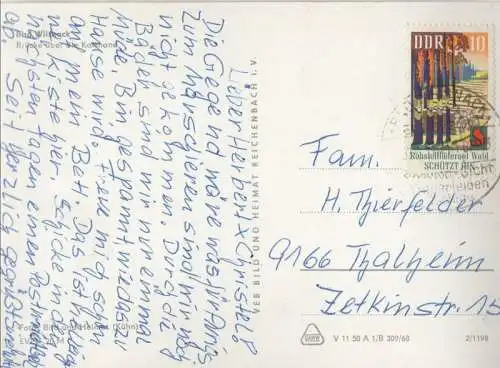 Bad Wilsnack
Brücke über die Karthane
Lieber Herbert & Christel!
Die Gegend wäre was für uns
zum Anschauen sind wir noch
nicht gekommen. Durch die
Bäder sind wir nur einmal
müde. Bin gespannt wie das zu
Hause wird. Freue mich schon
auf mein Bett. Das ist
eine Kiste hier. Schicke
nächsten Tagen einen
ab. Seit herzlich gegrüßt
Foto: Bild und Heimat (Kühn)
EVP 20 M
VEB BILD UND HEIMAT REICHENBACH I. V.
DDR 10
Rohstofflieferant Wald
SCHÜTZT IHN!
Fam.
H. Thierfelder
9166 Thalheim
Zetkinstr. 15
V 11 50 A 1/B 309/68
2/1198